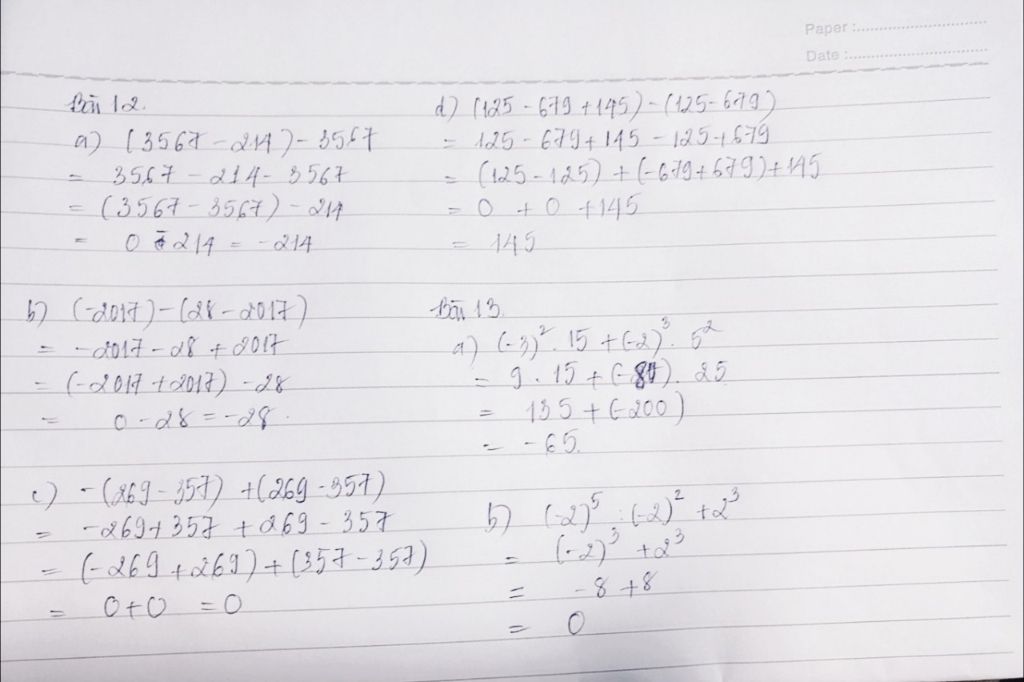 Paper :
Date :
Bài 12.
a) (3567 - 214) - 3567
= 3567 - 214 - 3567
= (3567 - 3567) - 214
= 0 - 214 = -214
b) (-2017) - (28 - 2017)
= -2017 - 28 + 2017
= (-2017 + 2017) - 28
= 0 - 28 = -28.
c) -(269 - 357) + (269 - 357)
= -269 + 357 + 269 - 357
= (-269 + 269) + (357 - 357)
= 0 + 0 = 0
d) (125 - 679 + 145) - (125 - 679)
= 125 - 679 + 145 - 125 + 679
= (125 - 125) + (-679 + 679) + 145
= 0 + 0 + 145
= 145
Bài 13
a) (-3)² . 15 + (-2)³ . 5²
= 9 . 15 + (-8) . 25
= 135 + (-200)
= -65.
b) (-2)⁵ : (-2)² + 2³
= (-2)³ + 2³
= -8 + 8
= 0